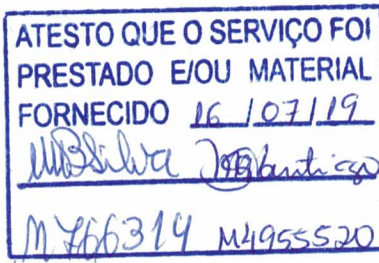 ATESTO QUE O SERVIÇO FOI
PRESTADO E/OU MATERIAL
FORNECIDO 16/07/19
MBSilva
M766314 M4955520